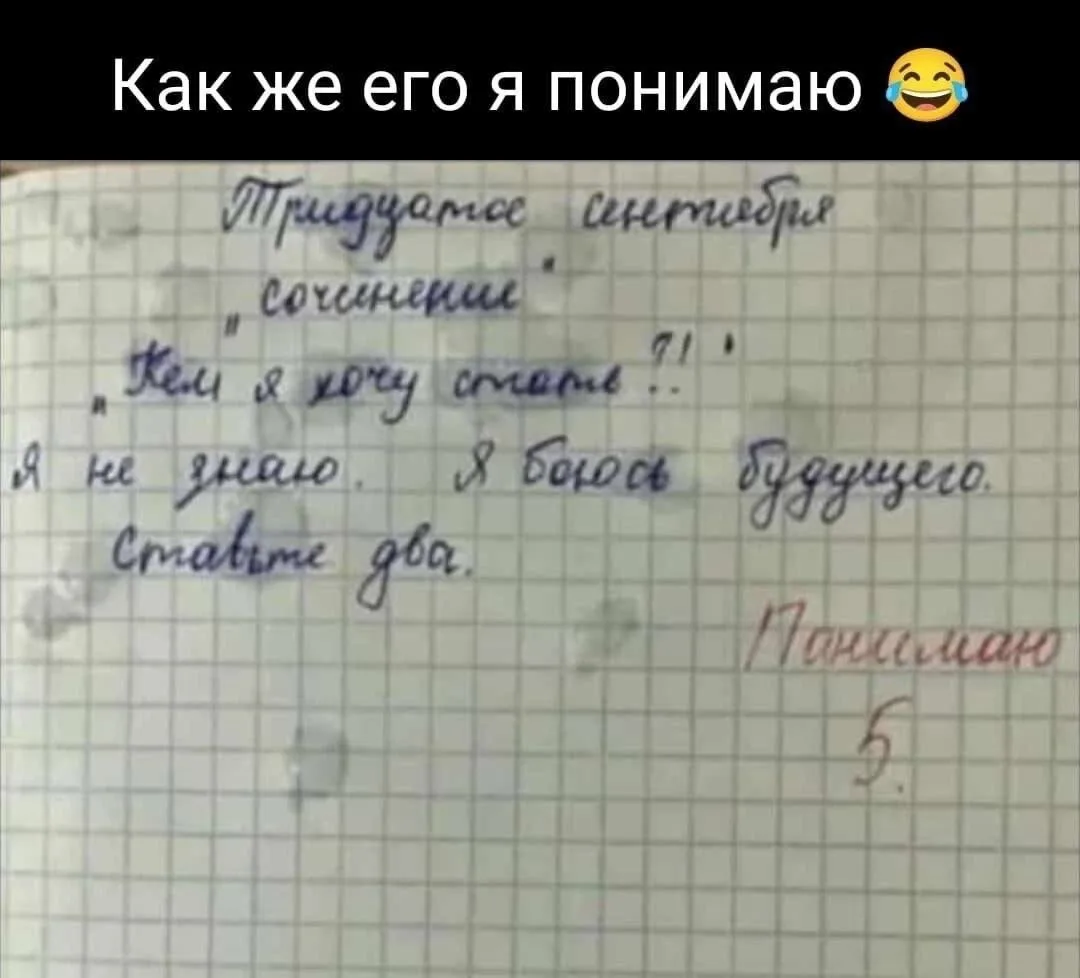 Как же его я понимаю 😂
Тридцатое сентября
„сочинение"
„Кем я хочу стать?!"
Я не знаю. Я боюсь будущего.
Ставьте два.
Понимаю
5.